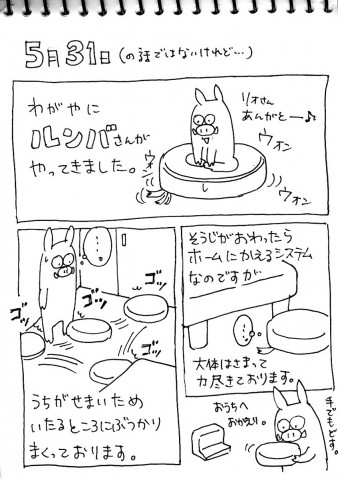 5月31日(の話ではないけれど…)
わがやに
ルンバさんが
やってきました。
リオさん
あんがとー♪
ウォン
ウォン
ウォン
そうじがおわったら
ホームにかえるシステム
なのですが
…
大体はさまって
力尽きております。
…
ゴッ
ゴッ
ゴッ
ゴッ
うちがせまいため
いたるところにぶつかり
まくっております。
おうちへ
おかえり。
手でもどす。